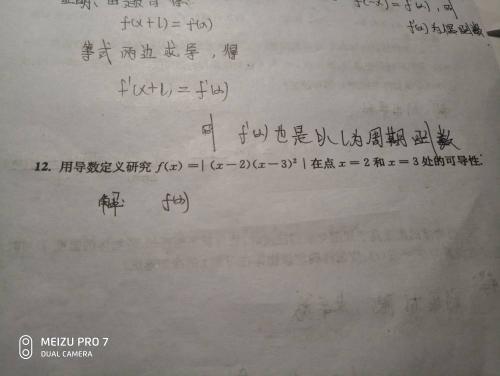 证明:由题可得
f(-x)=f(x),即
f(x+l)=f(x)
f'(x)为偶函数
等式两边求导,得
f'(x+l)=f'(x)
即 f'(x)也是以l为周期函数
12. 用导数定义研究 f(x)=|(x-2)(x-3)²|在点 x=2 和 x=3 处的可导性.
解: f(x)
MEIZU PRO 7
DUAL CAMERA